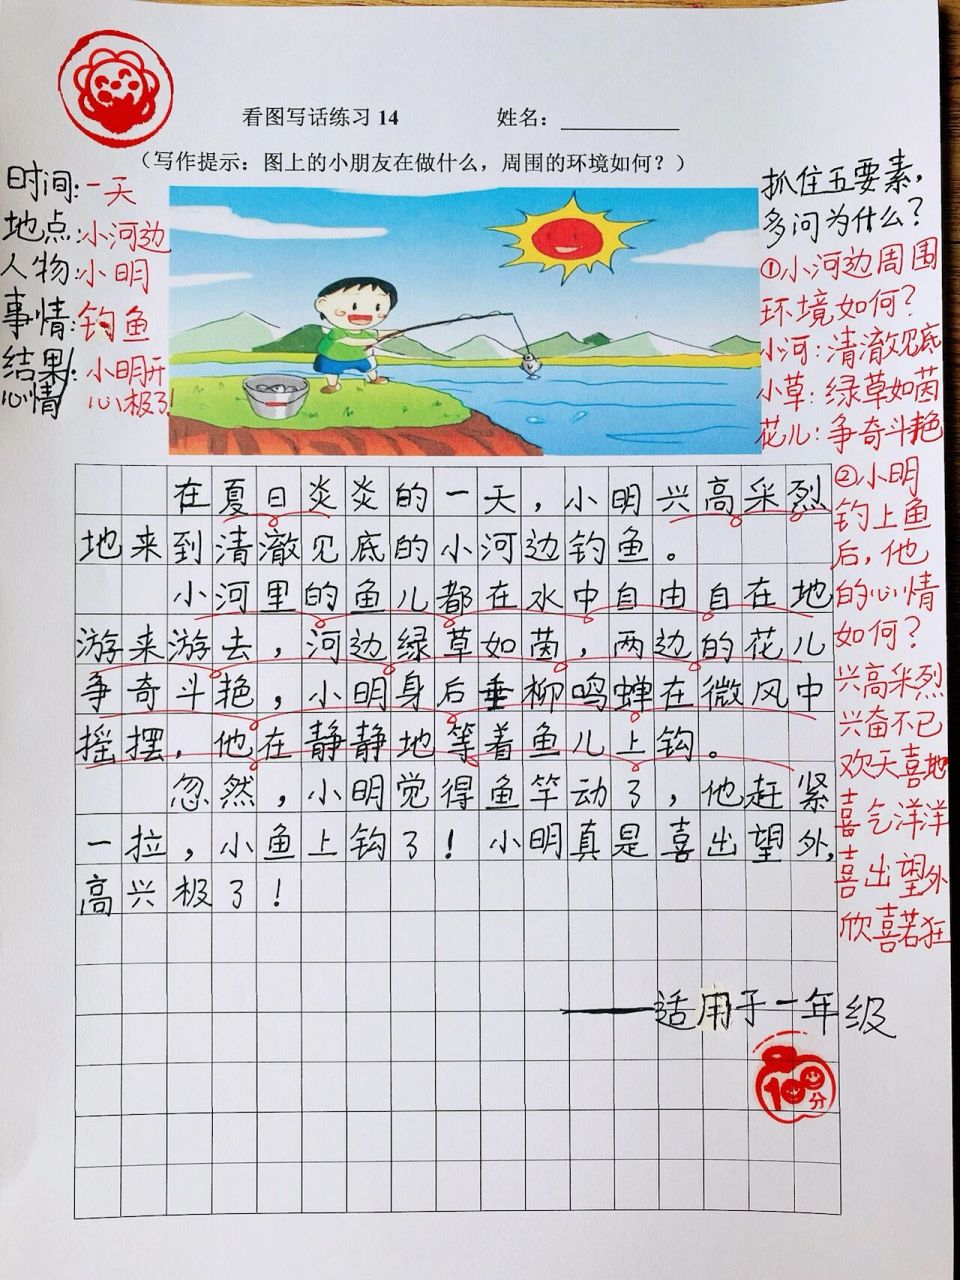 看图写话练习 14 姓名：
（写作提示：图上的小朋友在做什么，周围的环境如何？）
时间:一天
地点:小河边
人物:小明
事情:钓鱼
结果:小明开
心情 心极了!
抓住五要素,
多问为什么?
①小河边周围
环境如何?
小河:清澈见底
小草:绿草如茵
花儿:争奇斗艳
②小明
钓上鱼
后,他
的心情
如何?
兴高采烈
兴奋不已
欢天喜地
喜气洋洋
喜出望外
欣喜若狂
在夏日炎炎的一天,小明兴高采烈
地来到清澈见底的小河边钓鱼。
小河里的鱼儿都在水中自由自在地
游来游去,河边绿草如茵,两边的花儿
争奇斗艳,小明身后垂柳鸣蝉在微风中
摇摆,他在静静地等着鱼儿上钩。
忽然,小明觉得鱼竿动了,他赶紧
一拉,小鱼上钩了!小明真是喜出望外,
高兴极了!
——适用于一年级
100分